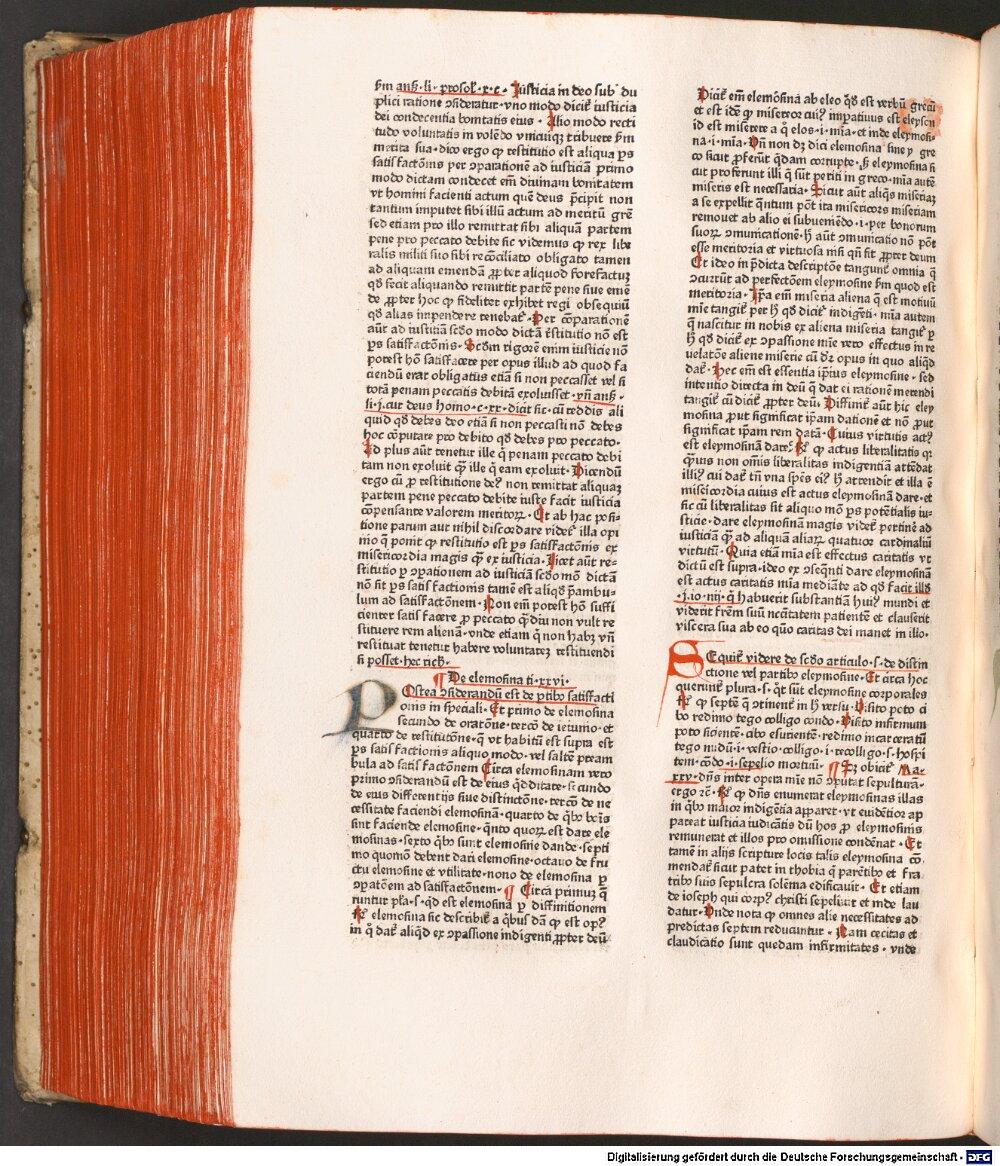 ẜm anẜ·li·prosoł·x·c· Iusticia in deo sub du
plici ratione ↄsideratur·vno modo dicit᷑ iusticia
dei condecentia bonitatis eius· Alio modo recti
tudo voluntatis in volēdo vnicuiqꝫ tribuere ẜm
merita sua·dico ergo ꝙ restitutio est aliqua ps
satisfactōnis per ↄparationē ad iusticiā primo
modo dictam condecet em̄ diuinam bonitatem
vt homini facienti actum quē deus p̄cipit non
tantum imputet sibi illū actum ad meritū grē
sed etiam pro illo remittat sibi aliquā partem
pene pro peccato debite sic videmus ꝙ rex libe
ralis militi suo sibi recōciliato obligato tamen
ad aliquam emendā ꝓpter aliquod forefactuꝫ
qď fecit aliquando remittit partē pene siue emē
de ꝓpter hoc ꝙ fideliter exhibet regi obsequiū
qď alias impendere tenebat᷑· Per cōparationē
aūt ad iustitiā scďo modo dictā r̄stitutio nō est
ps satisfactōnis· Scďm rigorē enim iusticie nō
potest hō satisfacere per opus illud ad quod fa
ciendū erat obligatus etiā si non peccasset vel si
totā penam peccatis debitā exoluisset·vn̄ anẜ·
li·j·cur deus homo·c·xx·dicit sic·cū reddis ali
quid qď debes deo etiā si non peccasti nō debes
hoc cōputare pro debito qď debes pro peccato·
Ad plus aūt tenetur ille q̄ penam peccato debi
tam non exoluit ꝙ̄ ille q̇ eam exoluit· Dicendū
ergo cū ꝓ restitutione deꝰ non remittat aliquaꝫ
partem pene peccato debite iuste facit iusticia
cōpensante valorem meritoꝝ· Et ab hac posi-
tione parum aut nihil discordare videt᷑ illa opi
nio q̄ ponit ꝙ restitutio est ps satisfactōnis ex
misericordia magis ꝙ̄ ex iusticia· Licet aūt re-
stitutio ꝑ ↄparationem ad iusticiā scďo mō dictā
nō sit ps satisfactionis tamē est aliqď p̄ambu-
lum ad satisfactōnem· Non em̄ potest hō suffi
cienter satisfacere ꝓ peccato q̄diu non vult re
stituere rem alienā·vnde etiam q̇ non habꝫ vn̄
restituat tenetur habere voluntateꝫ restituendi
si posset·hec rich·
¶ De elemosina ti·xxvi·
POstea ↄsiderandū est de ptibꝰ satisfacti
onis in speciali· Et primo de elemosina
secundo de oratōne·tercō de ieiunio·et
quarto de restitutōne·q̄ vt habitū est supra est
ps satisfactionis aliquo modo·vel saltē pream
bula ad satisfactōnem Circa elemosinam vero
primo ↄsiderandū est de eiꝰ qďditate·secundo
de eius differentijs siue distinctōne·tercō de ne
cessitate faciendi elemosinā·quarto de qͥbꝰ bois
sint faciende elemosine·qͥnto quoꝝ est dare ele
mosinas·sexto qͥbꝰ sunt elemosine dande·septi
mo quomō debent dari elemosine·octauo de fru
ctu elemosine et vtilitate·nono de elemosina ꝑ
ↄpatōem ad satisfactōnem· ¶ Circa primuꝫ q̄
runtur pła·s·qď est elemosina ꝑ diffinitionem
Rͤ elemosina sic describit᷑ a qͥbus dā ꝙ est opꝰ
in q̊ dat᷑ aliqď ex ↄpassione indigenti ꝓpter deū
Dicit᷑ em̄ elemōsina ab eleo qď est verbū grecū
et est idē ꝙ misereor cuiꝰ imꝑatiuus est eleyson
id est miserere a q̊ elos·i·mīa·et inde eleymosi-
na·i·mīa· Vn̄ non dꝫ dici elemosina sine y gre
co sicut ꝓferūt qͥdam corrupte·ẜ eleymosina si
cut proferunt illi q̇ sūt periti in greco·mīa autē
miseris est necessaria· Sicut aūt aliqͥs miseriaꝫ
a se expellit qͣntum pōt ita misericors miseriam
remouet ab alio ei subueniēdo·i·per bonorum
suoꝝ ↄmunicationē·ħ aūt ↄmunicatio nō pōt
esse meritoria et virtuosa nisi qn̄ fit ꝓpter deum
Et ideo in p̄dicta descriptōe tangunt᷑ omnia q̄
ↄcurrūt ad perfectōem eleymosine ẜm quod est
meritoria· Ip̄a em̄ miseria aliena q̄ est motiuū
mīe tangit᷑ per ħ qď dicit᷑ indigēti·mīa autem
q̄ nascitur in nobis ex aliena miseria tangit᷑ ꝑ
ħ qď dicit᷑ ex ↄpassione mīe vero effectus in re
uelatōe aliene miserie cū dr̄ opus in quo aliqď
dat᷑· Hec em̄ est essentia ip̄ius eleymosine·sed
intentio directa in deū q̄ dat ei rationē merendi
tangit᷑ cū dicit᷑ ꝓpter deū· Diffinit᷑ aūt hic eley
mosina ꝓut significat ip̄am dationē et nō ꝓut
significat ip̄am rem datā· Cuius virtutis actꝰ
est eleymosinā dare· Rͤ ꝙ actus liberalitatis qꝛ
qͣmuis non om̄is liberalitas indigentiā attēdat
illiꝰ cui dat᷑ tn̄ vna spēs eiꝰ ħ attendit et illa ē
misericordia cuius est actus eleymosinā dare·et
sic cū liberalitas sit aliquo mō ps potētialis iu-
sticie·dare eleymosinā magis videt᷑ pertinē ad
iusticiā ꝙ̄ ad aliquā aliaꝝ quatuor cardinaliū
virtutū· Quia etiā mīa est effectus caritatis vt
dictū est supra·ideo ex ↄseqn̄ti dare eleymosinā
est actus caritatis mīa mediāte ad qď facit illď
·j·io·iij·q̇ habuerit substantiā huiꝰ mundi et
viderit fr̄em suū nc̄itatem patientē et clauserit
viscera sua ab eo quō caritas dei manet in illo·
SEquit᷑ videre de scďo articulo·s·de distin
ctione vel partibꝰ eleymosine· Et circa hoc
querunt᷑ plura·s·q̇t sūt eleymosine corporales
Rͤ ꝙ septē q̄ ↄtinent᷑ in ħ versu· Visito poto ci
bo redimo tego colligo condo· Visito infirmum
poto sitientē·cibo esurientē·redimo incarceratū
tego nudū·i·vestio·colligo·i·recolligo·s·hospi
tem·cōdo·i·sepelio mortuū· ¶ Sꝫ obicit᷑ Ma-
xxv·dn̄s inter opera mīe nō ↄputat sepulturā·
ergo rē· Rͤ ꝙ dn̄s enumerat eleymosinas illas
in qͥbꝰ maior indigētia apparet·vt euidētior ap
pareat iusticia iudicātis dū hos ꝓ eleymosinis
remunerat et illos pro omissione condēnat· Et
tamē in alijs scripture locis talis eleymosina cō
mendat᷑ sicut patet in thobia q̇ parētibꝰ et fra
tribꝰ suis sepulcra solēma edificauit· Et etiam
de ioseph qui corpꝰ christi sepeliuit et inde lau
datur· Vnde nota ꝙ omnes alie necessitates ad
predictas septem reducuntur· Nam cecitas et
claudicatio sunt quedam infirmitates·vnde
Digitalisierung gefördert durch die Deutsche Forschungsgemeinschaft - DFG